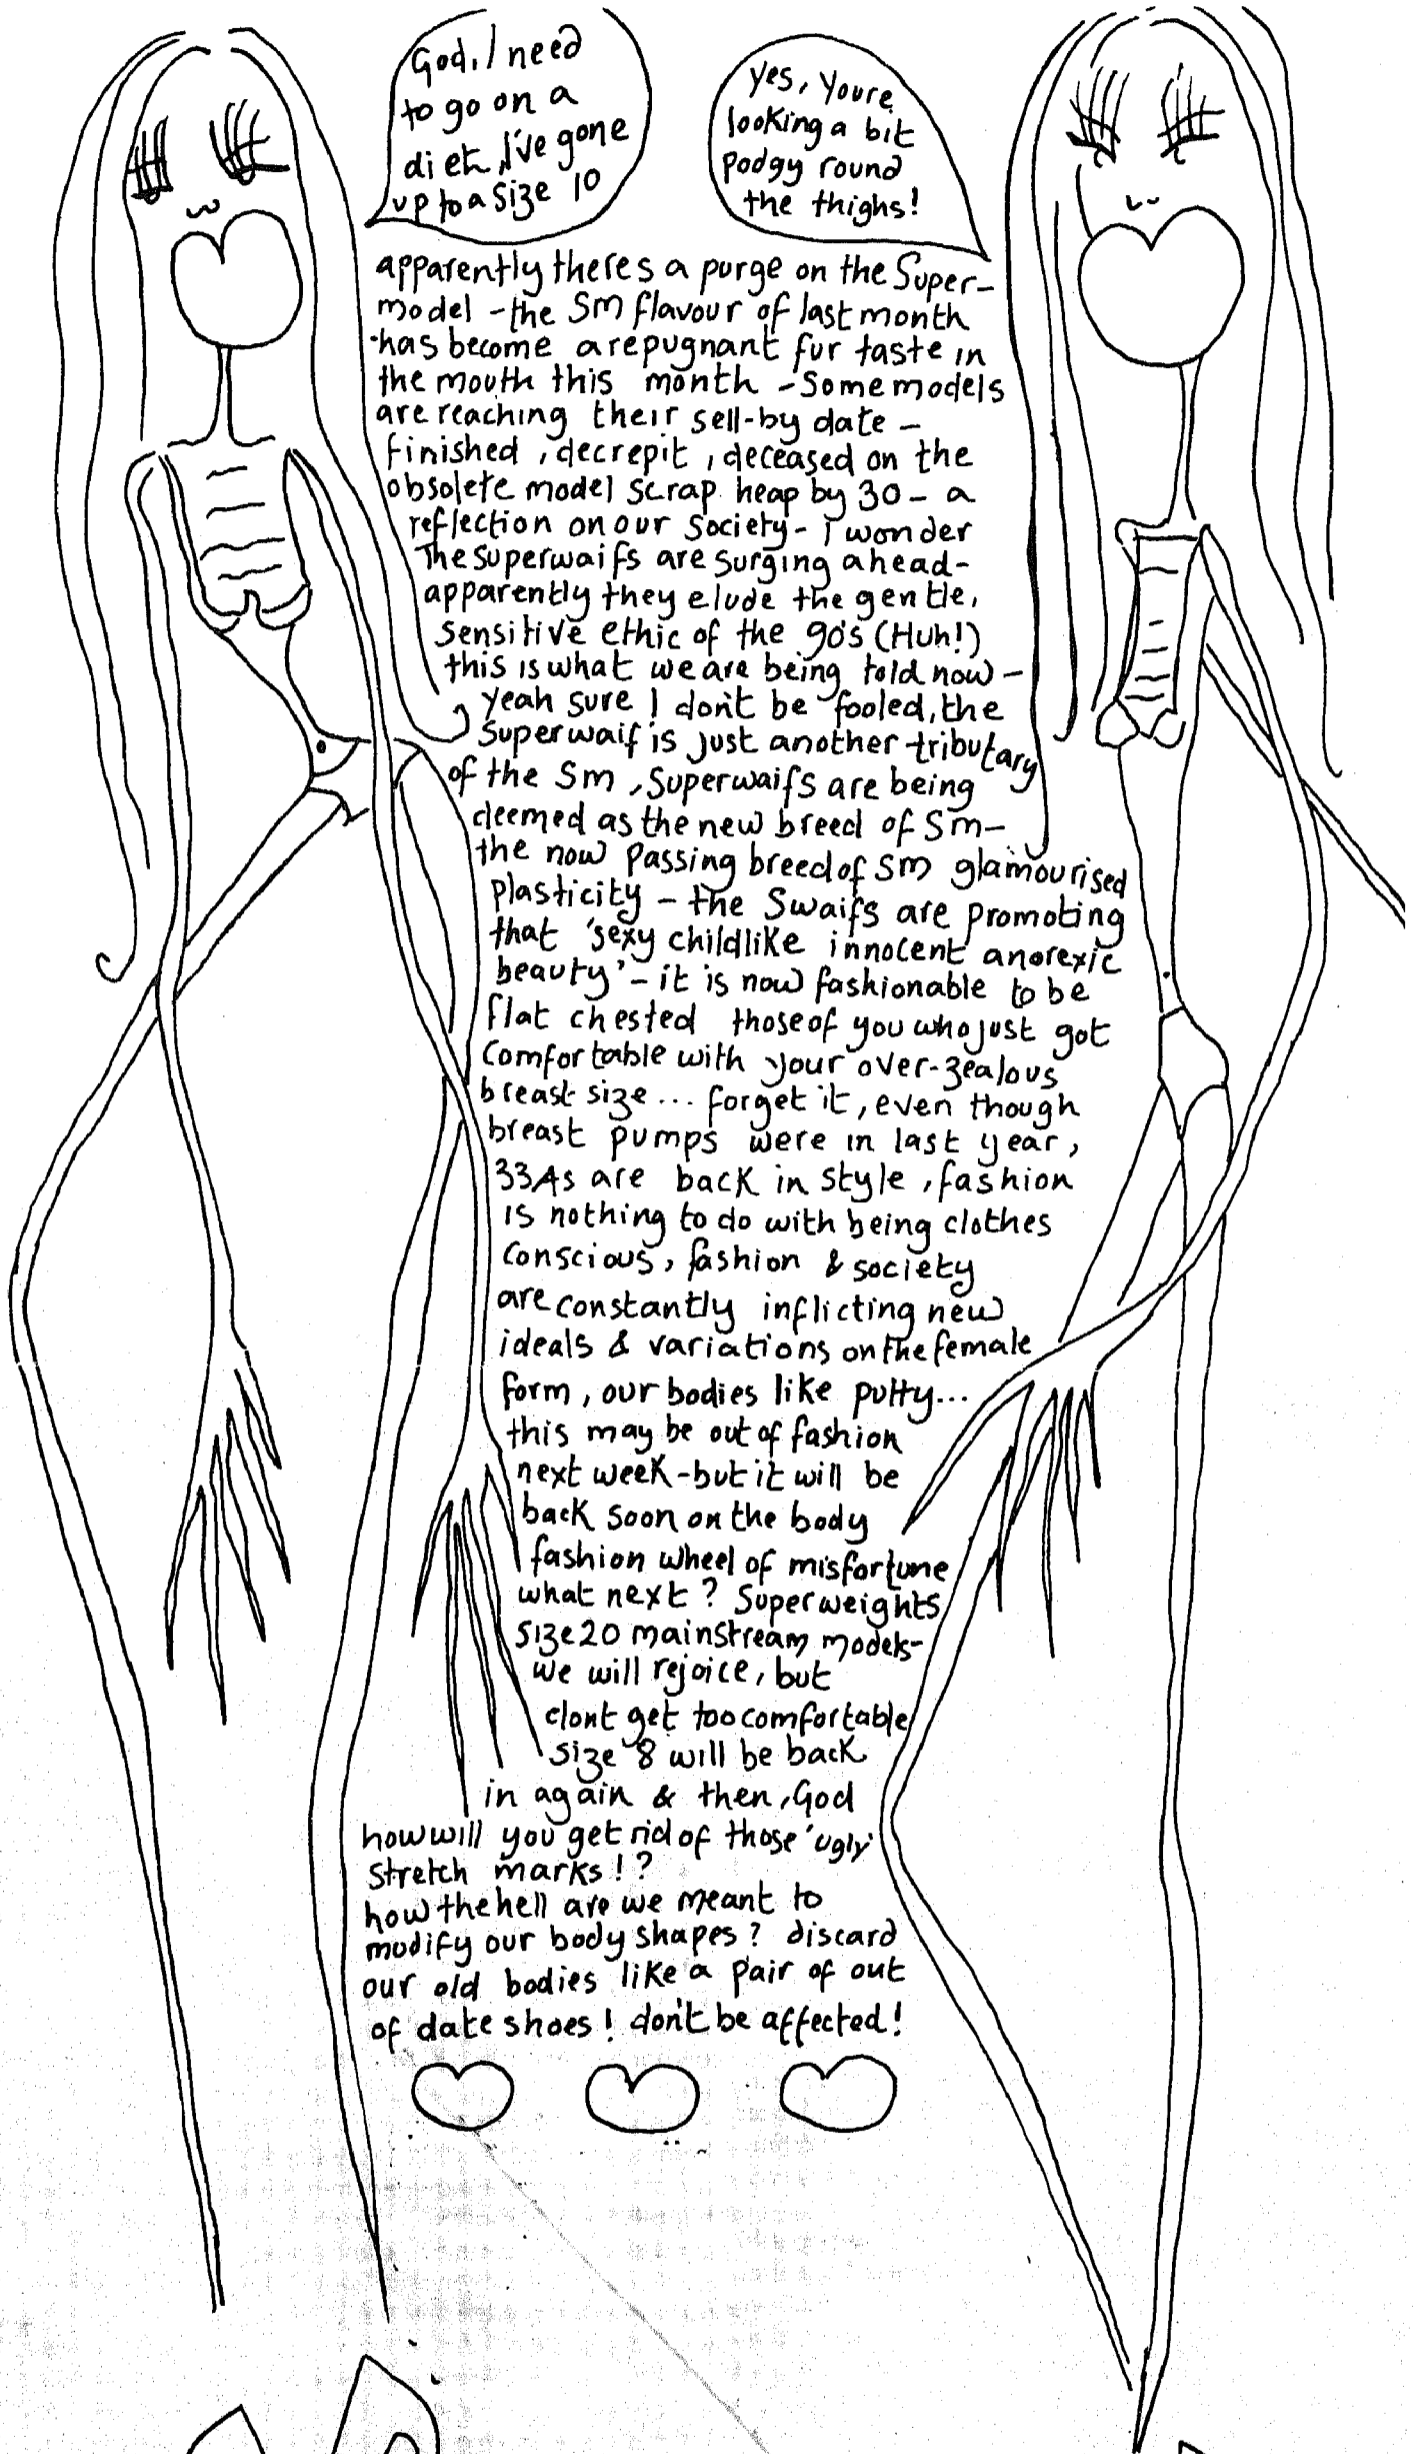 God, I need
to go on a
diet, I've gone
up to a size 10
yes, youre
looking a bit
podgy round
the thighs!
apparently theres a purge on the Super-
model - the Sm flavour of last month
-has become a repugnant fur taste in
the mouth this month - Some models
are reaching their sell-by date -
finished, decrepit, deceased on the
obsolete model scrap heap by 30 - a
reflection on our society - I wonder
The superwaifs are surging ahead-
apparently they elude the gentle,
sensitive ethic of the 90's (Huh!)
this is what we are being told now -
yeah sure! don't be fooled, the
Superwaif is just another tributary
of the Sm, Superwaifs are being
deemed as the new breed of Sm-
the now passing breed of Sm glamourised
plasticity - the Swaifs are promoting
that 'sexy childlike innocent anorexic
beauty' - it is now fashionable to be
flat chested those of you who just got
comfortable with your over-zealous
breast size... forget it, even though
breast pumps were in last year,
33As are back in style, fashion
is nothing to do with being clothes
conscious, fashion & society
are constantly inflicting new
ideals & variations on the female
form, our bodies like putty...
this may be out of fashion
next week - but it will be
back soon on the body
fashion wheel of misfortune
what next? Superweights
size 20 mainstream models-
we will rejoice, but
dont get too comfortable
size 8 will be back
in again & then, God
how will you get rid of those 'ugly'
stretch marks!?
how the hell are we meant to
modify our body shapes? discard
our old bodies like a pair of out
of date shoes! don't be affected!